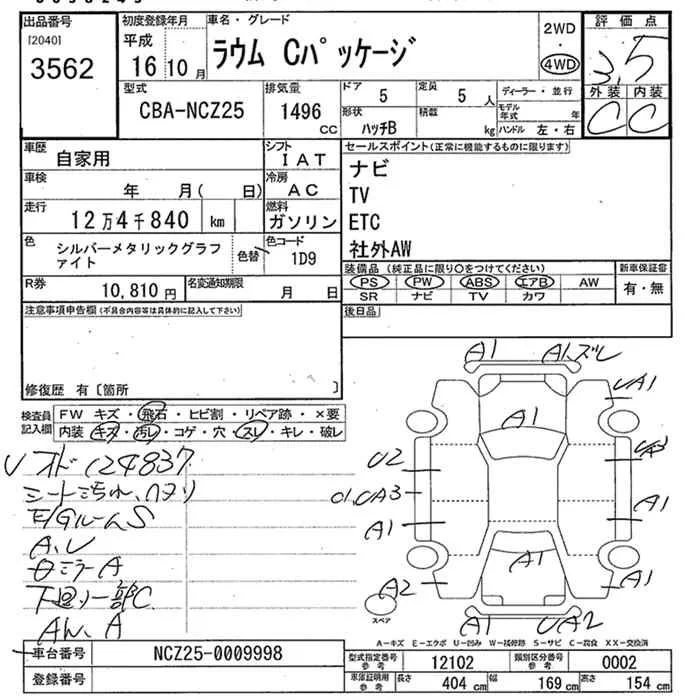 出品番号 初度登録年月 車名・グレード 評価点
[2040] 平成 ラウム Cパッケージ 2WD・4WD 3.5
3562 16年10月 外装 内装
型式 排気量 ドア 定員 ディーラー・並行 C C
CBA-NCZ25 1496cc 5 5人 モデル年式 年
形状 ハッチB 積載 kg ハンドル 左・右
車歴 自家用 シフト IAT セールスポイント(正常に機能するものに限ります)
車検 年 月( 日) 冷房 AC ナビ
走行 12万4千840 km 燃料 ガソリン TV
ETC
色 シルバーメタリックグラファイト 色替 色コード 1D9 社外AW
装備品(純正品に限り○をつけてください) 新車保証書
R券 10,810円 名変通知期限 月 日 PS PW ABS エアB AW 有・無
SR ナビ TV カワ
注意事項申告欄(不具合内容等は具体的に記入して下さい) 後日品
修復歴 有〔箇所 〕
検査員記入欄 FW キズ・飛石・ヒビ割・リペア跡・×要
内装 キズ・汚レ・コゲ・穴・スレ・キレ・破レ
A1 A1.ズレ
UA1
A1
U2
A1
A1
A1
A1
A2
A1
A1 UA2
124837
シート
E/Gルーム S
A.U
ミラー A
下廻り一部C
A
スペア
A-キズ E-エクボ U-凹み W-補修跡 S-サビ C-腐食 XX-交換済
車台番号 NCZ25-0009998 型式指定番号 参考 12102 類別区分番号 参考 0002
登録番号 車庫証明用 参考 長さ 404cm 幅 169cm 高さ 154cm